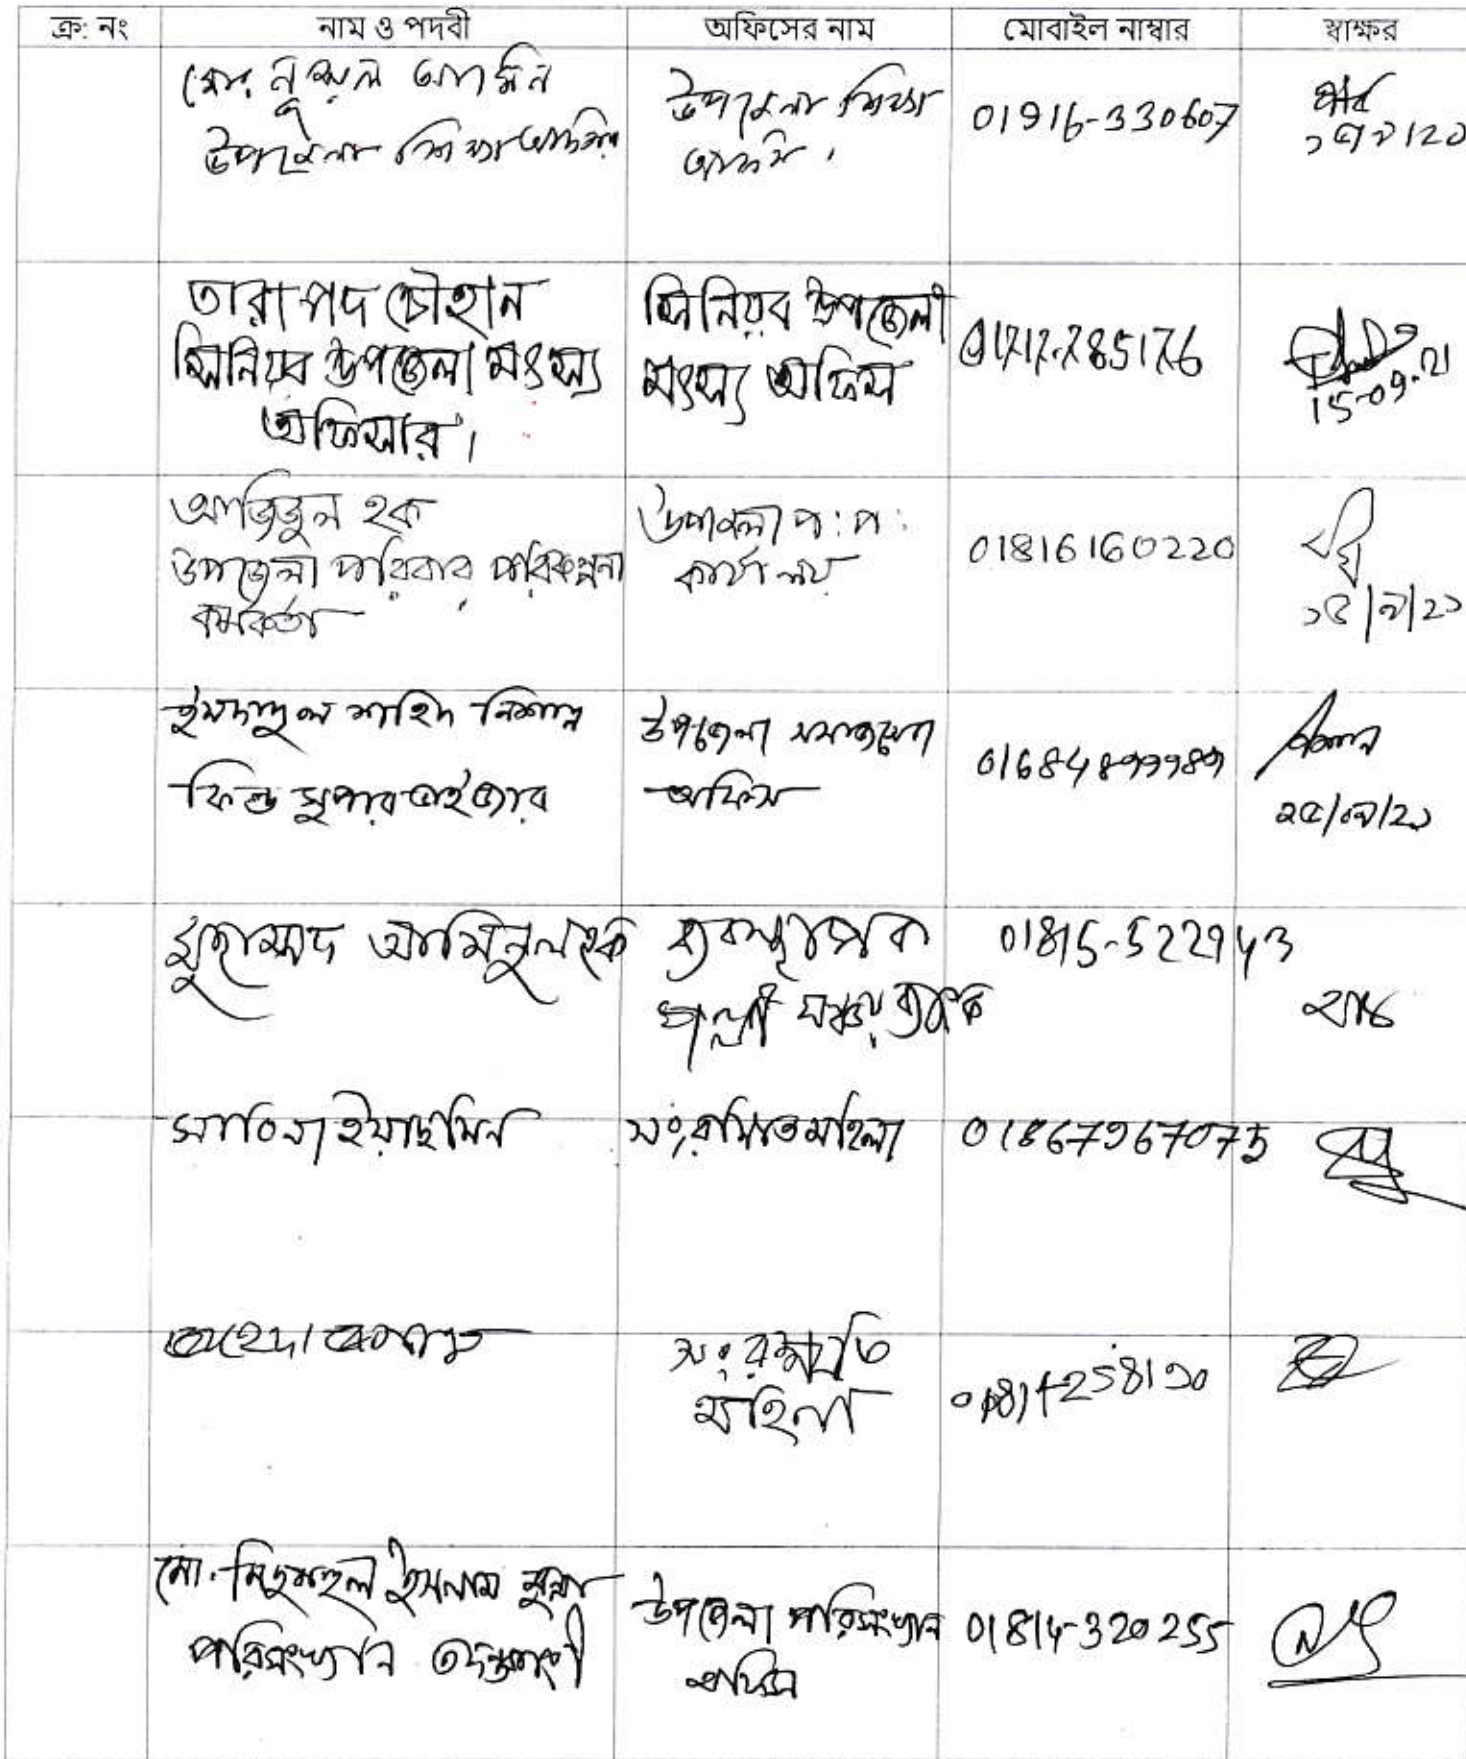 ক্র: নং নাম ও পদবী অফিসের নাম মোবাইল নাম্বার স্বাক্ষর
মোঃ নুরুল আমিন
উপজেলা শিক্ষা অফিসার
উপজেলা শিক্ষা
অফিস।
01916-330607
তারাপদ চৌহান
সিনিয়র উপজেলা মৎস্য
অফিসার।
সিনিয়র উপজেলা
মৎস্য অফিস
01717-785176
15-09-21
আজিজুল হক
উপজেলা পরিবার পরিকল্পনা
কর্মকর্তা
উপজেলা প: প:
কার্যালয়
01816160220
১৫/৯/২১
ইমদাদুল শাহিদ নিশান
ফিল্ড সুপারভাইজার
উপজেলা সমাজসেবা
অফিস
01684899989
১৫/০৯/২১
মুহাম্মদ আমিনুল হক
ব্যবস্থাপক
পল্লী সঞ্চয় ব্যাংক
01815-522943
ইয়াছমিন
সংরক্ষিত মহিলা
01867967075
সংরক্ষিত
মহিলা
মো. ইসলাম মুন্না
পরিসংখ্যান তদন্তকারী
উপজেলা পরিসংখ্যান
অফিস
01814-320255